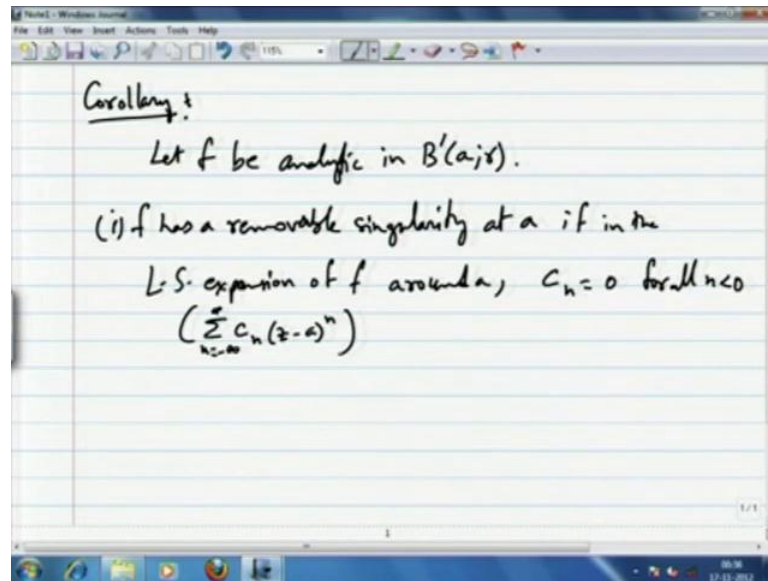 Note1 - Windows Journal
File Edit View Insert Actions Tools Help
115%
Corollary :
Let f be analytic in B'(a;r).
(i) f has a removable singularity at a if in the
L.S. expansion of f around a, Cₙ = 0 for all n<0
(∑_{n=-∞}^{∞} Cₙ (z-a)ⁿ)
1/1
1
17-11-2012